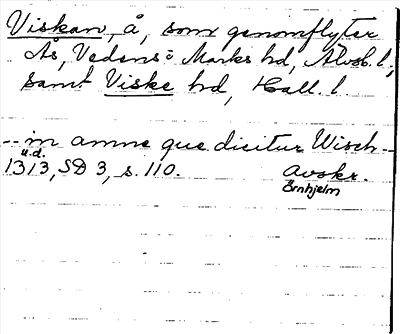 Viskan, å, som genomflyter
Ås, Vedens o Marks hd, Älvsb. l.,
samt Viske hd, Hall. l.
-- in amne que dicitur Wisch --
u.d.
1313, SD 3, s. 110. avskr.
Örnhjelm